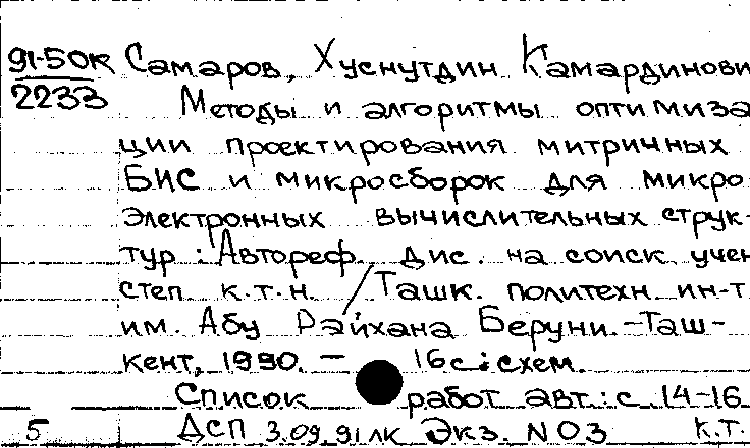 91-5OK Самаров, Хуснутдин Камардинови
2233 Методы и алгоритмы оптимиза
ции проектирования митричных
БИС и микросборок для микро
электронных вычислительных струк-
тур : Автореф. Дис. на соиск. учен
степ к.т.н. / Ташк. политехн ин-т
им. Абу Райхана Беруни. - Таш-
кент, 1990. - 16 с : схем.
Список работ авт. : с. 14-16
5 ДСП 3.09.91 лк Экз. N 03 к.т.